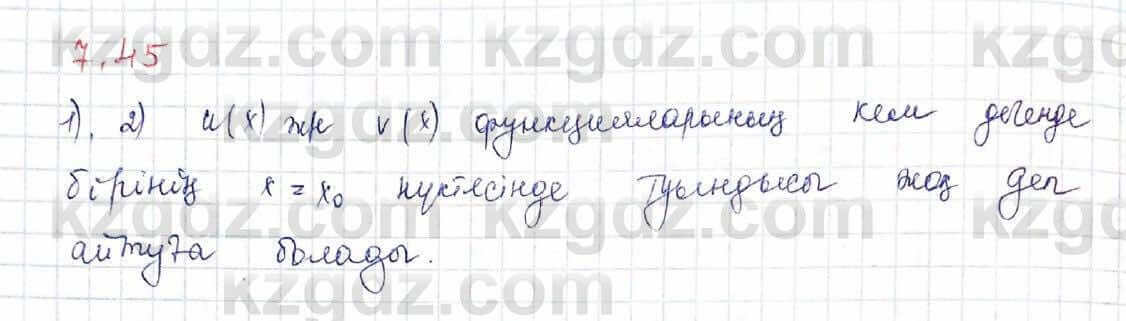 kzgdz.com kzgdz.com kzgdz.com
7.45
1), 2) u(x) жн v(x) функцияларының кем дегенде
kzgdz.com kzgdz.com
бірінің x = x₀ нүктесінде туындысы жоқ деп
kzgdz.com kzgdz.com kzgdz.com
айтуға болады.
kzgdz.com kzgdz.com